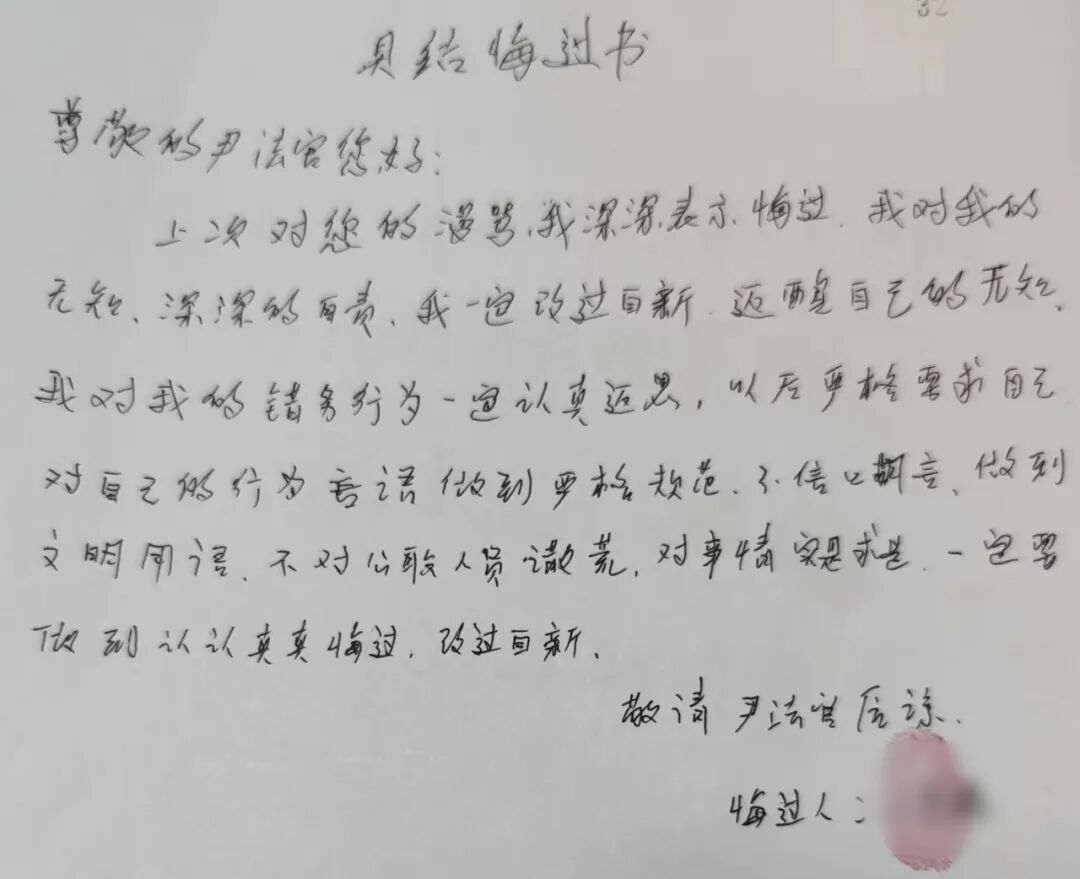 32
具结悔过书
尊敬的尹法官您好:
上次对您的漫骂,我深深表示悔过.我对我的
无知、深深的自责、我一定改过自新.迈醒自己的无知、
我对我的错务行为一定认真迈思,以后严格要求自己
对自己的行为言语做到严格规范.不信口胡言、做到
文明用语、不对公职人员撒荒,对事情实是求是.一定要
做到认认真真悔过,改过自新、
敬请尹法官后谅.
悔过人: